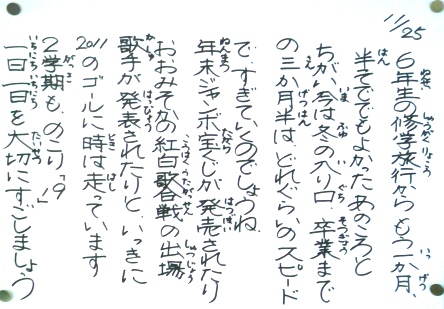 11/25
6年生の修学旅行からもう一か月、
半そででもよかったあのころと
ちがい今は冬の入り口。卒業まで
の三か月半はどれぐらいのスピード
ですぎていくのでしょうね。
年末ジャンボ宝くじが発売されたり
おおみそかの紅白歌合戦の出場
歌手が発表されたりと、いっきに
2011のゴールに時は走っています
2学期も、のこり「19」
一日一日を大切にすごしましょう